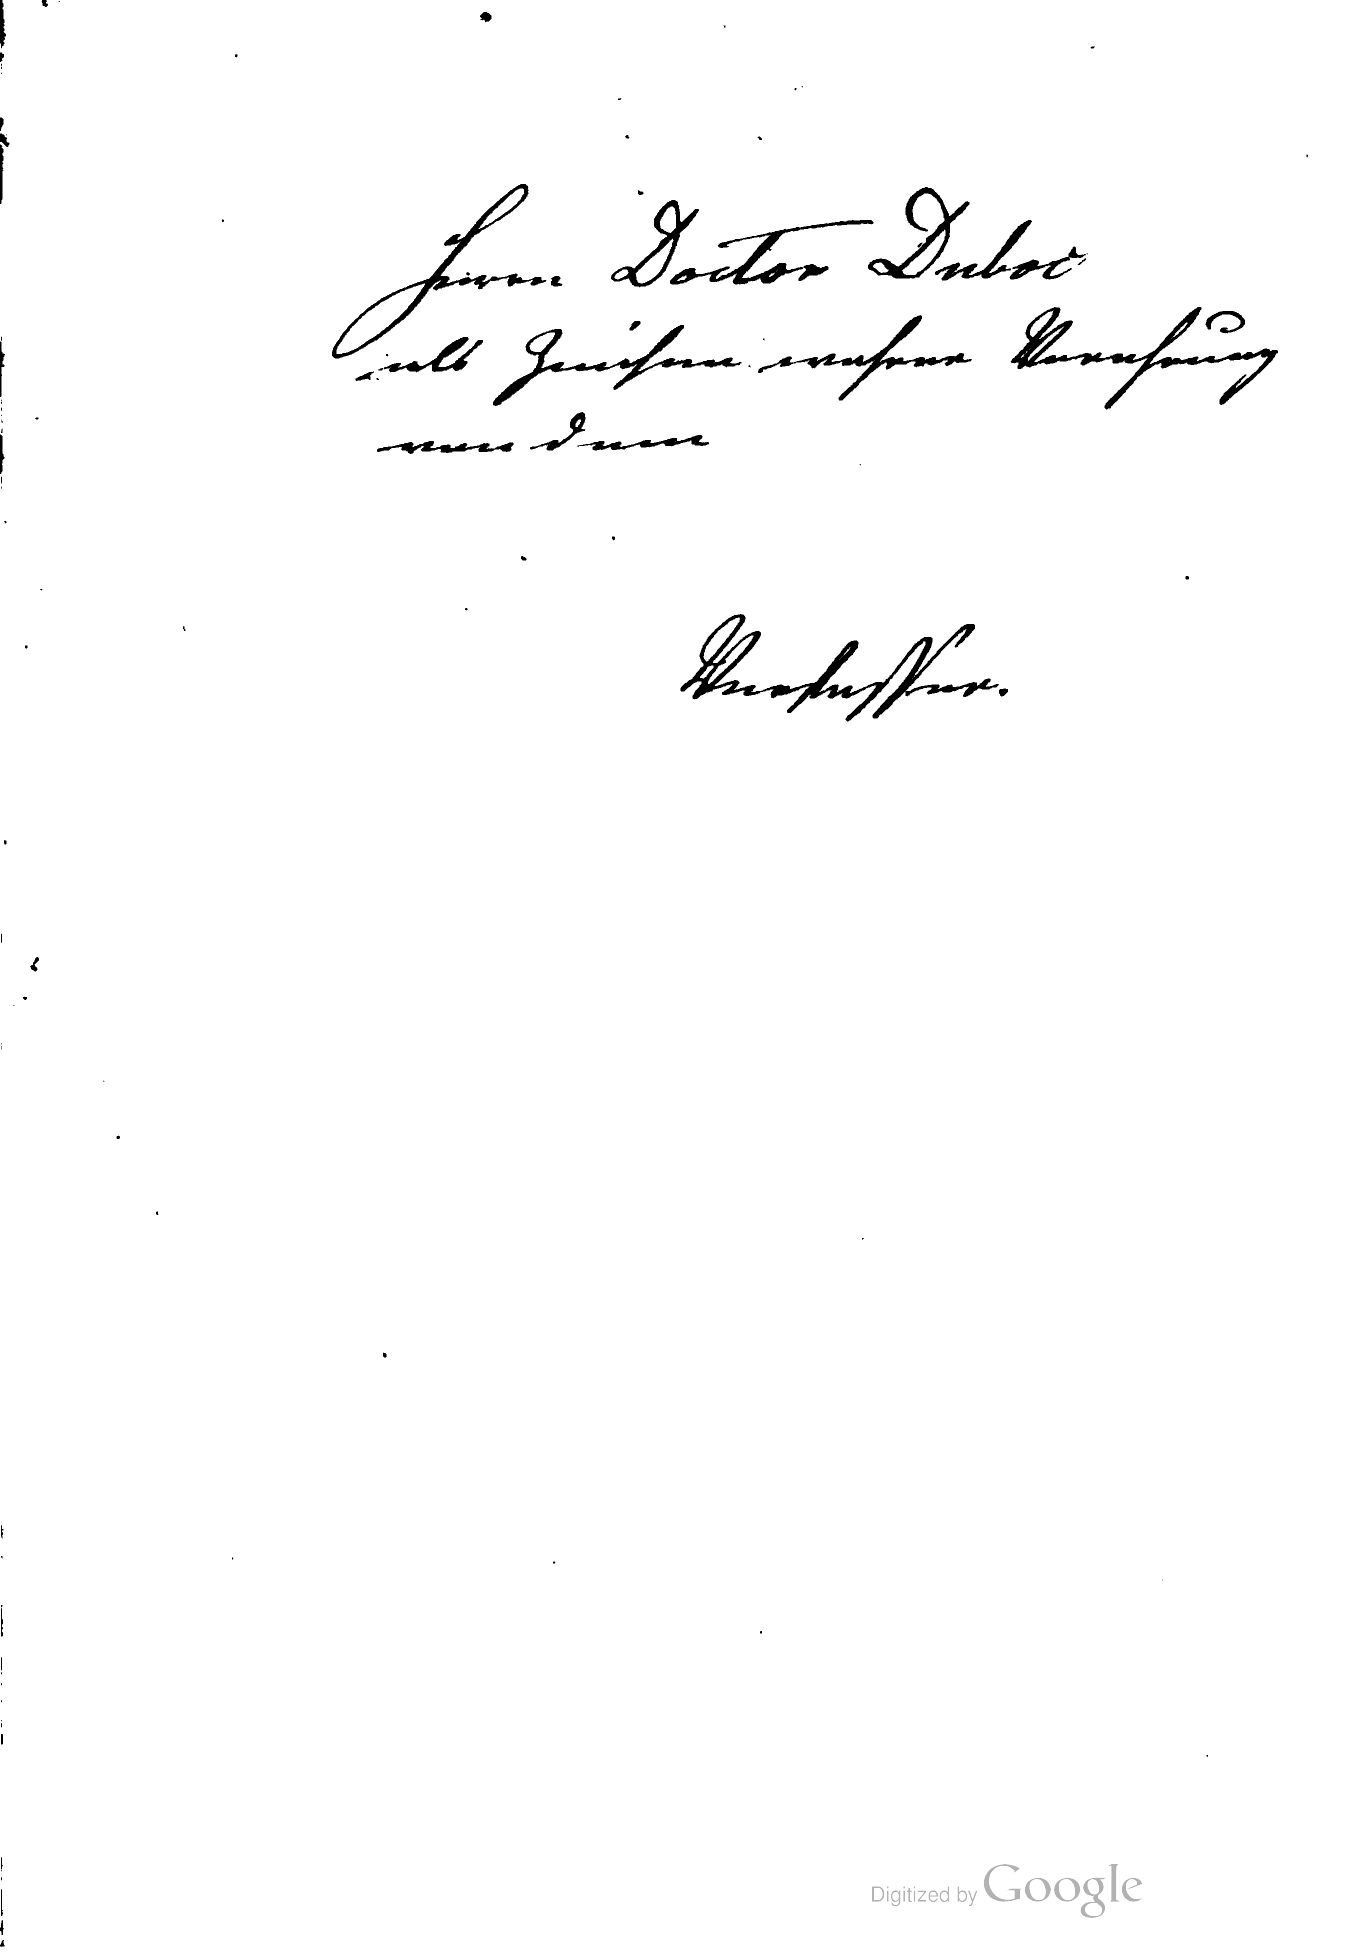 Herrn Doctor Duboc
als Zeichen wahrer Verehrung
von dem
Verfasser.
Digitized by Google